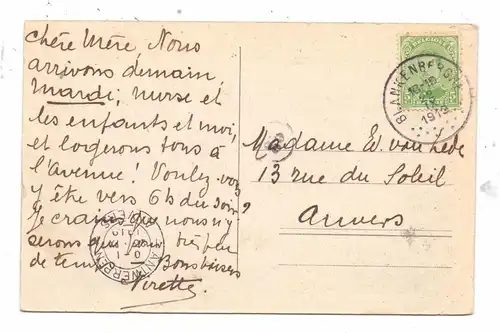 Chère Mère, Nous
arrivons demain,
mardi, nurse et
les enfants et moi,
et logerons tous à
l'avenue! Voulez-vous
y être vers 6h du soir?
Je crains que nous n'y
serons que pour très peu
de temps. Bons baisers
Yvette
BELGIQUE
BLANKENBERGHE
1913
Madame E. van
13 rue du Soleil
Anvers
ANTWERPEN
ANVERS